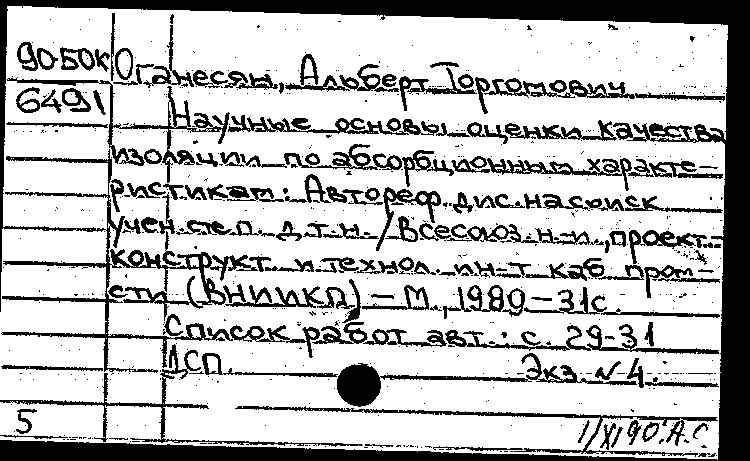 90-50К Оганесян, Альберт Торгомович
6491 Научные основы оценки качества
изоляции по абсорбционным характе-
ристикам: Автореф. дис. на соиск
учен. степ. д.т.н. / Всесоюз. н.-и., проект.-
конструкт. и технол. ин-т каб. пром-
сти (ВНИИКП) – М., 1989 – 31с.
Список работ авт.: с. 29-31
ДСП. Экз. N 4.
5 1/XI 90 А.С.